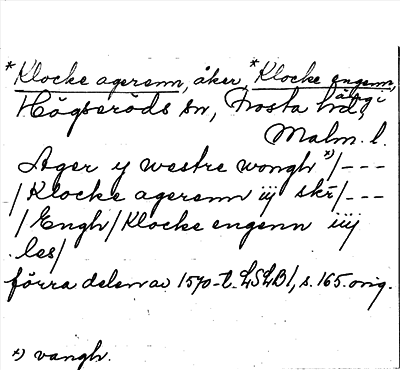 *Klocke agerenn, åker, *Klocke engenn,
äng i
Högseröds sn, Frosta hd,
Malm. l.
Ager y westre wongh *)/---
/Klocke agerenn iij skr̄/---
/Engh/Klocke engenn iiij
les/
förra delen av 1570-t. LSLB1, s. 165. orig.
*) vangh.